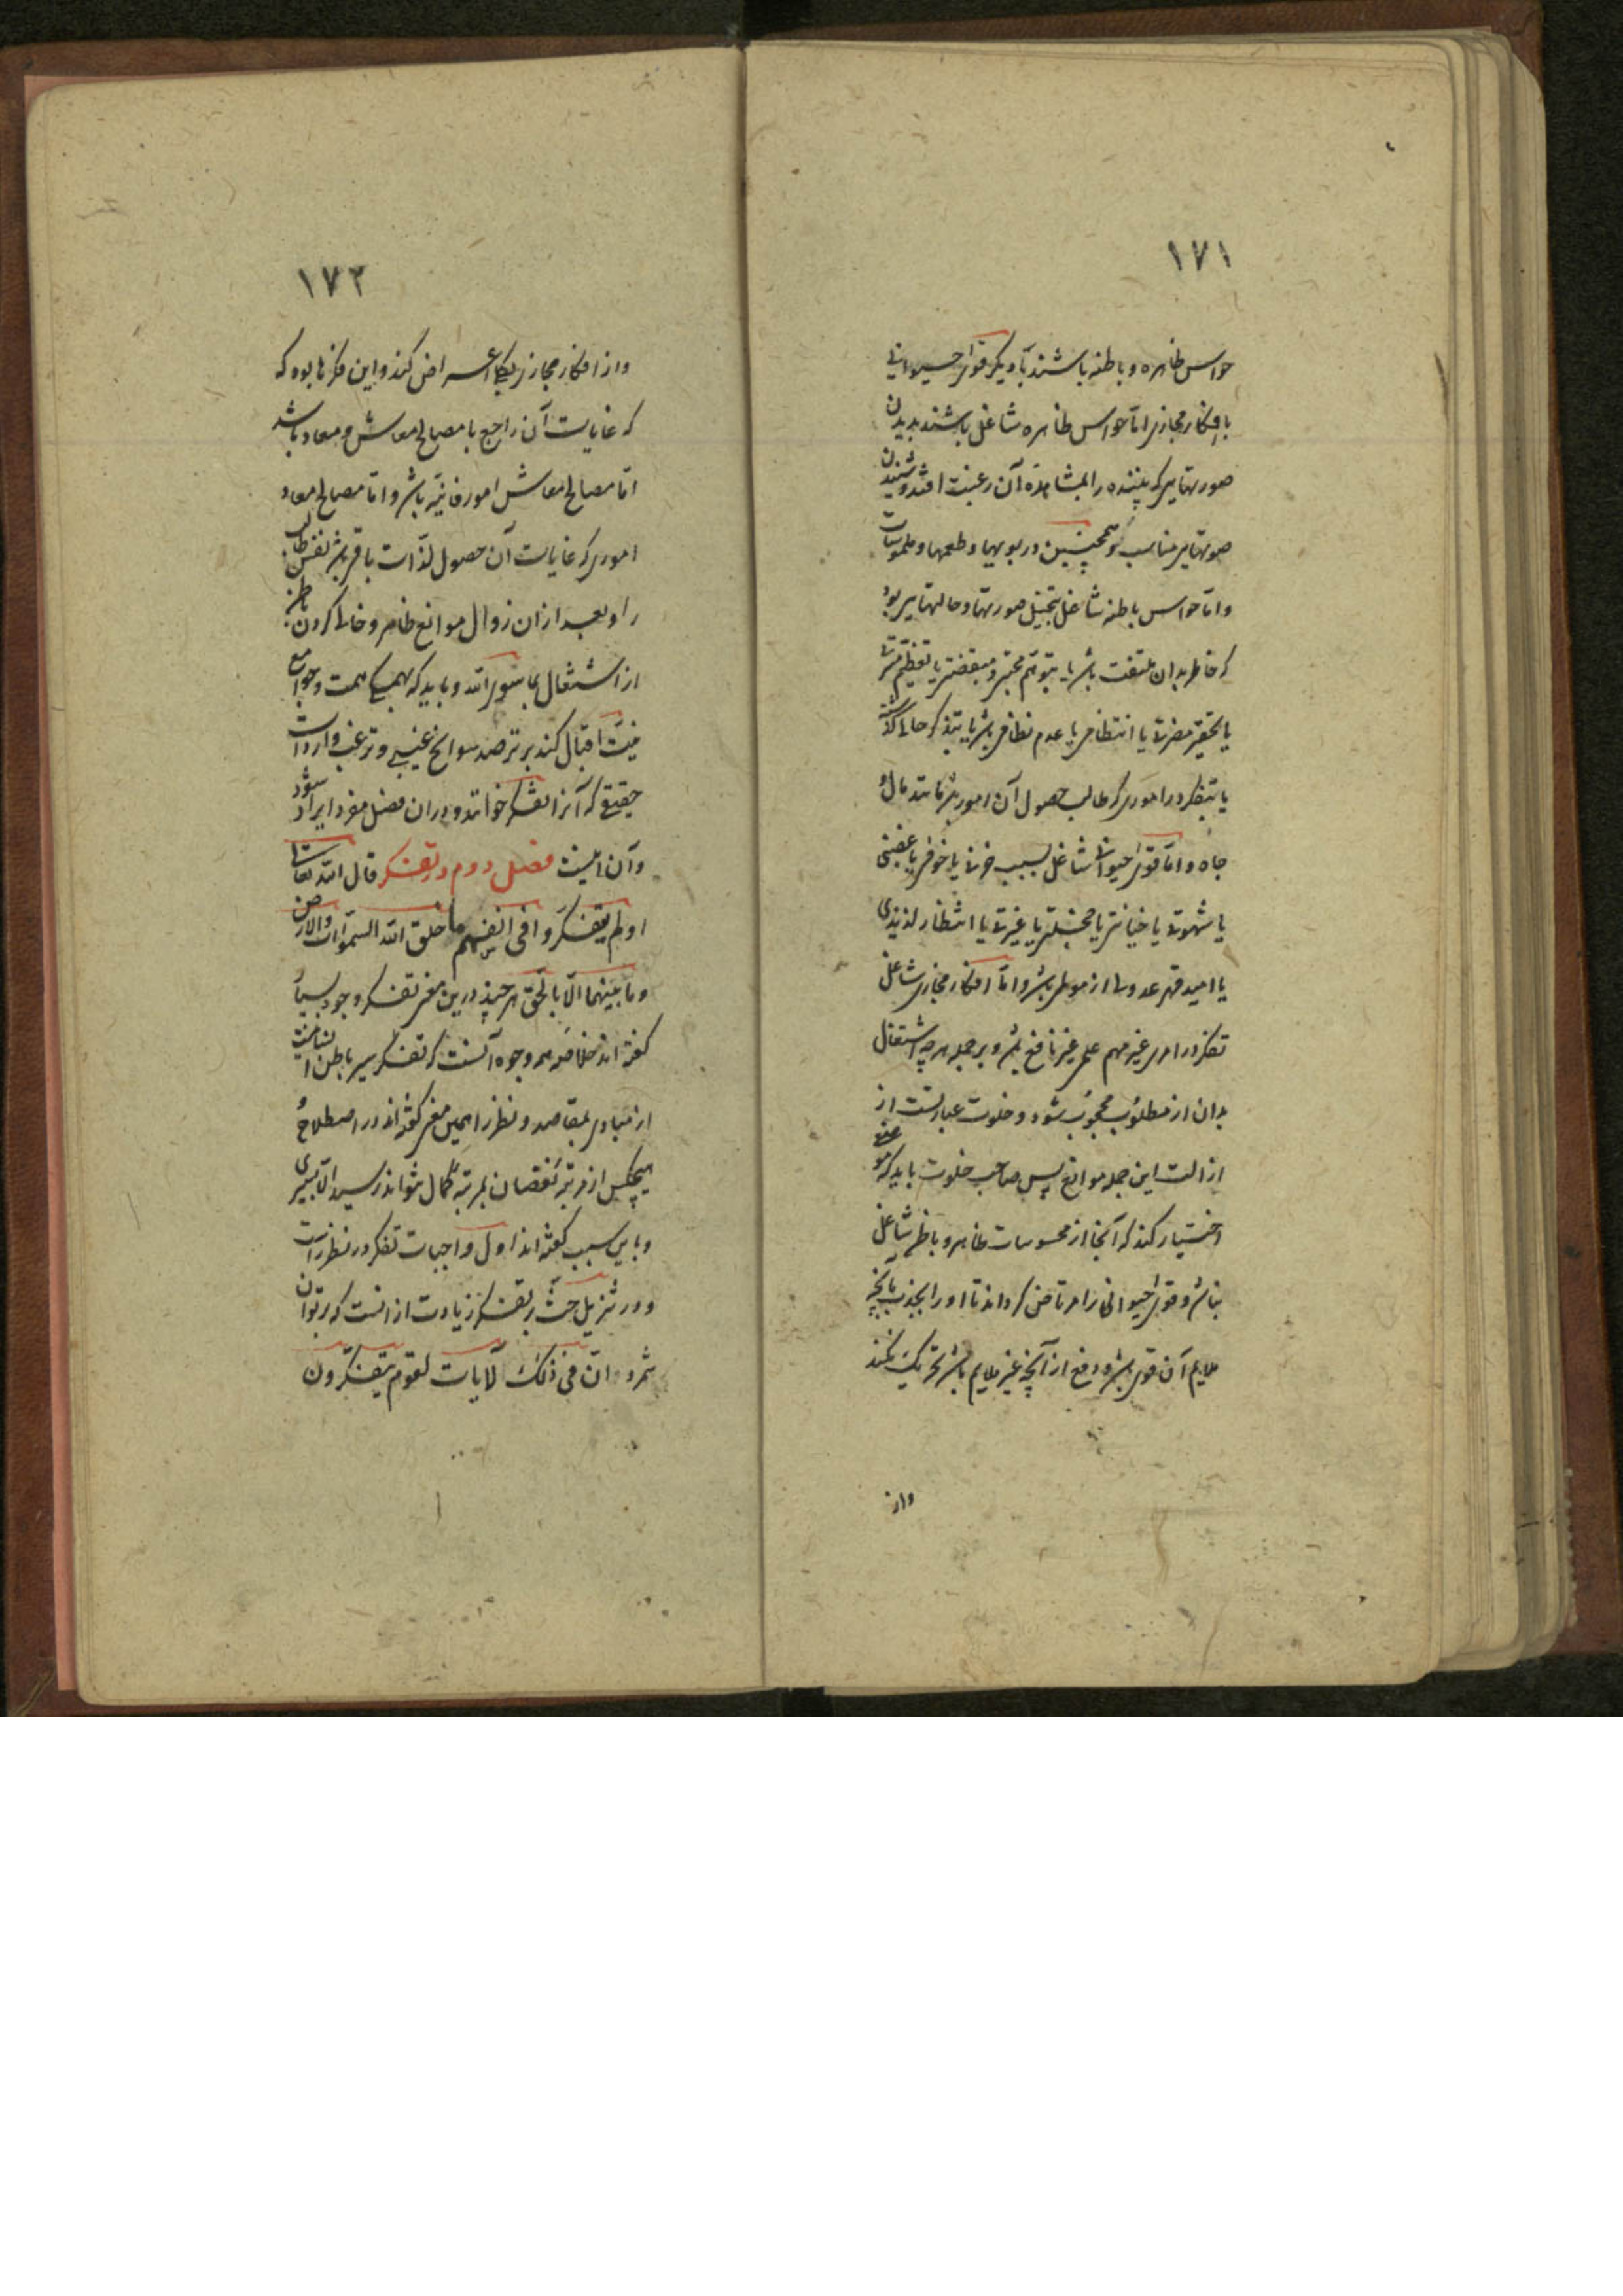 ۱۷۱
حواس ظاهره و باطنه باشند یا دیگر قوای حیوانی
یا افکار مجازی اما حواس ظاهره شاغل باشند بدیدن
صورتهایی که بیننده را بمشاهده آن رغبت افتد و شنیدن
صوتهایی مناسب و همچنین در بویها و طعمها و ملموسات
و اما حواس باطنه شاغل بتخیل صورتها و حالتهایی بود
که خاطر بدان ملتفت باشد یا بتوهم محبتی و مبغضتی یا تعظیم مسرتی
یا تحقیر مضرتی یا انتظامی یا عدم نظامی باشد یا بتذکر حالی گذشته
یا بتفکر در اموری که طالب حصول آن امور باشد مانند مال و
جاه و اما قوای حیوانی شاغل بسبب حزنی یا خوفی یا غضبی
یا شهوتی یا خیانتی یا خجلتی یا غیرتی یا انتظار لذیذی
یا امید قهر عدوی از مولم باشد و اما افکار مجازی شاغل
تفکر در امری غیر مهم علمی غیر نافع باشد و بر جمله هر چه اشتغال
بدان از مطلوب محجوب شود و خلوت عبارتست از
ازالت این جمله موانع پس صاحب خلوت باید که موضعی
اختیار کند که آنجا از محسوسات ظاهر و باطن شاغلی
نباشد و قوای حیوانی را مرتاض گرداند تا او را بجذب بآنچه
ملایم آن قوی باشد و دفع از آنچه غیر ملایم باشد تحریک نکند
و از
۱۷۲
و از افکار مجازی بکلی اعراض کند و این فکرها بود که
که غایات آن راجع با مصالح معاش و معاد باشد
اما مصالح معاش امور فانیه باشد و اما مصالح معاد
اموری که غایات آن حصول لذات باقی باشد نفس طالب
را و بعد از آن زوال موانع ظاهر و خالی کردن باطن
از اشتغال بما سوی الله و باید که بهمگی همت و جوامع
نیت اقبال کند بر ترصد سوانح غیبی و ترقب واردات
حقیقی که آنرا تفکر خوانند و در آن فصل مفرد ایراد شود
و آن اینست فصل دوم در تفکر قال الله تعالی
اولم یتفکروا فی انفسهم ما خلق الله السموات والارض
وما بینهما الا بالحق هر چند در این معنی تفکر وجود بسیار
گفته اند خلاصه همه وجوه آنست که تفکر سیر باطن انسانیست
از مبادی بمقاصد و نظر را همین معنی گفته اند در اصطلاح و
هیچکس از مرتبه نقصان بمرتبه کمال نتواند رسید الا بسیری
و باین سبب گفته اند اول واجبات تفکر و نظر است
و در تنزیل حث بر تفکر زیادت از آنست که بر توان
شمرد ان فی ذلک لآیات لقوم یتفکرون